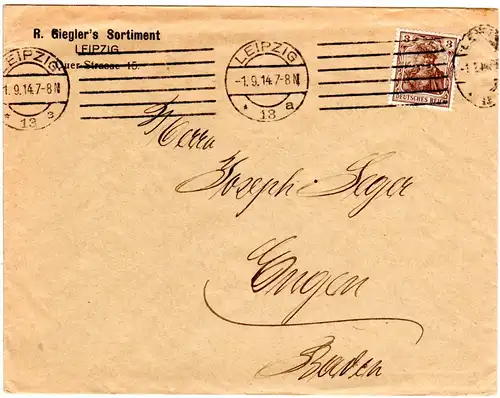 R. Giegler's Sortiment
LEIPZIG
Quer Strasse 15.
LEIPZIG
1.9.14.7-8N
* 13 a
LEIPZIG
-1.9.14.7-8N
* 13 a
3 3
DEUTSCHES REICH
Herrn
Joseph Seger
Engen
Baden